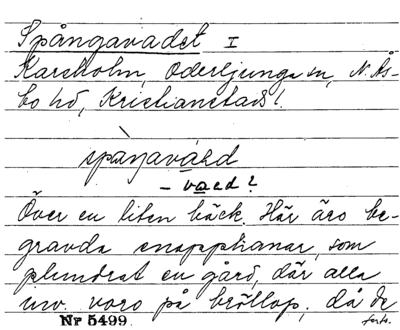 Spångavadet I
Karsholm, Oderljunga sn, N. Ås-
bo hd, Kristianstads l.
spaŋavard
– vaed?
Över en liten bäck. Här äro be-
gravda snapphanar, som
plundrat en gård, där alla
inv. voro på bröllop, då de
Nr 5499 forts.